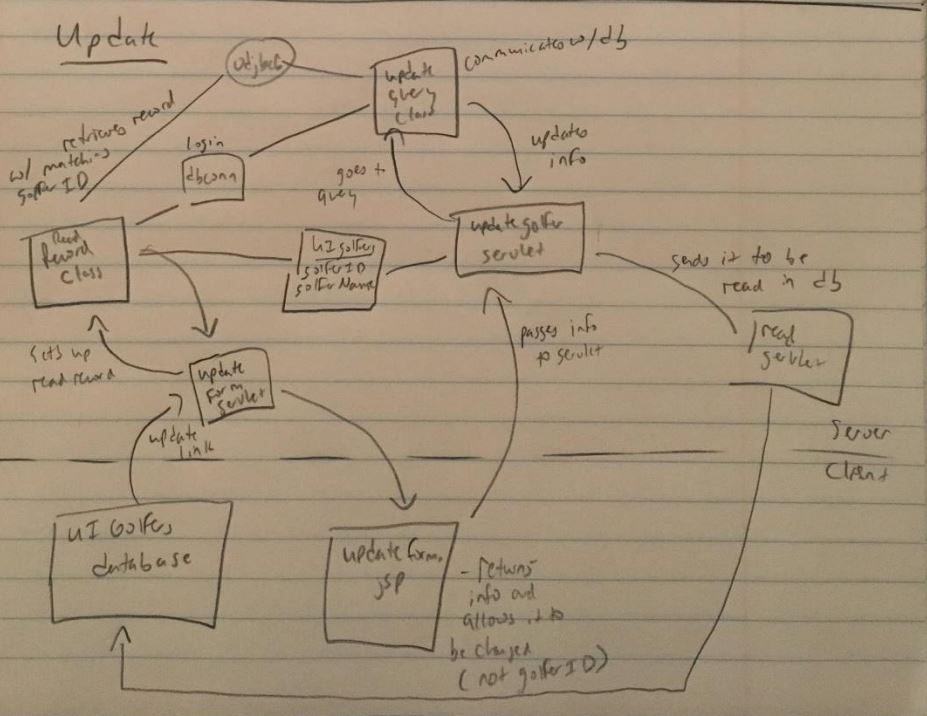 Update
communicates w/ db
update
query
class
retrieves record
w/ matching
golfer ID
login
dbconn
updates
info
goes to
query
Read
Record
Class
UI golfers
golferID
golferName
update golfer
servlet
sends it to be
read in db
passes info
to servlet
read
servlet
sets up
read record
update
form
servlet
update
link
Server
Client
UI Golfers
database
update form.
jsp
- returns
info and
allows it to
be changed
(not golferID)